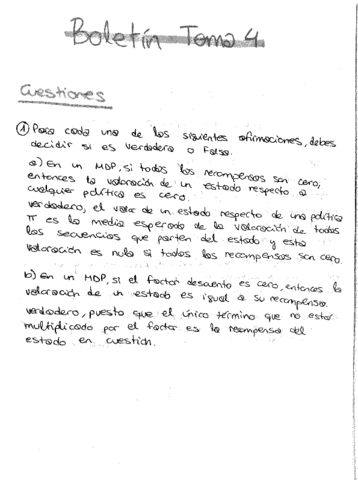 Boletín Tema 4
Cuestiones
① Para cada una de las siguientes afirmaciones, debes
decidir si es verdadera o falsa.
a) En un MDP, si todas las recompensas son cero,
entonces la valoración de un estado respecto a
cualquier política es cero.
verdadero, el valor de un estado respecto de una política
π es la media esperada de la valoración de todas
las secuencias que parten del estado y esta
valoración es nula si todas las recompensas son cero
b) En un MDP, si el factor descuento es cero, entonces la
valoración de un estado es igual a su recompensa.
verdadero, puesto que el único término que no estar
multiplicado por el factor es la recompensa del
estado en cuestión.